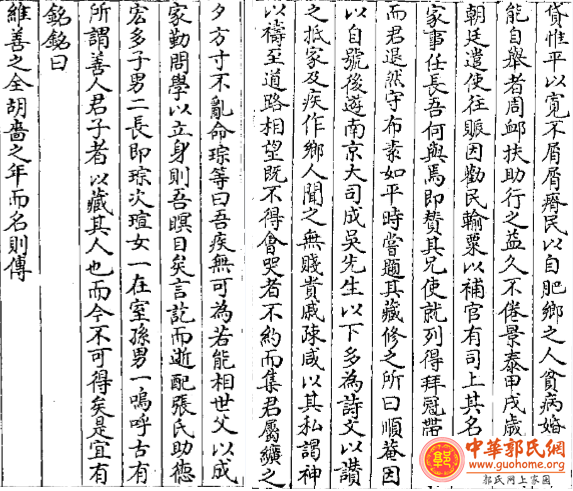 貸惟平以寬不屑屑瘠民以自肥鄉之人貧病婚
能自舉者周邺扶助行之益久不倦景泰甲戌歲
朝廷遣使往賑因勸民輸粟以補官有司上其名
家事任長吾何與焉即賛其兄使就列得拜冠帶
而君退然守布素如平時嘗題其藏修之所曰順菴因
以自號後遊南京大司成吳先生以下多為詩文以讃
之抵家及疾作鄉人聞之無賤貴戚疎咸以其私謁神
以禱至道路相望既不得會哭者不約而集君屬纊之
夕方寸不亂命琮等曰吾疾無可為若能相世父以成
家勤問學以立身則吾瞑目矣言訖而逝配張氏助德
宏多子男二長即琮次瑄女一在室孫男一嗚呼古有
所謂善人君子者以藏其人也而今不可得矣是宜有
銘銘曰
維善之全胡嗇之年而名則傳
中華郭氏網
www.guohome.org
郭氏网上家園